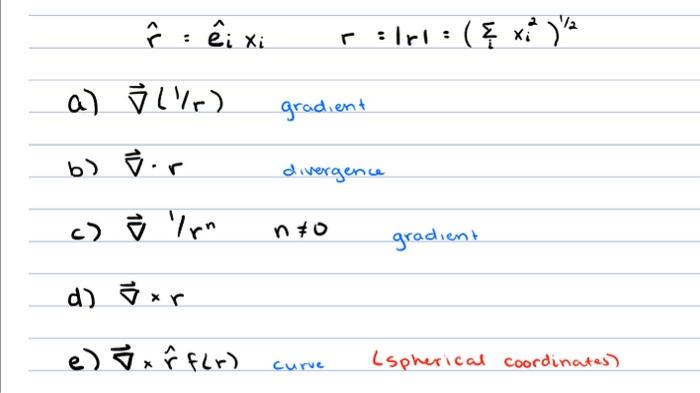 r̂ = ê_i x_i    r = |r| = (Σ_i x_i²)^1/2
a) ∇⃗(1/r)    gradient
b) ∇⃗ · r    divergence
c) ∇⃗ 1/rⁿ    n ≠ 0    gradient
d) ∇⃗ × r
e) ∇⃗ × r̂ f(r)    curve    (spherical coordinates)